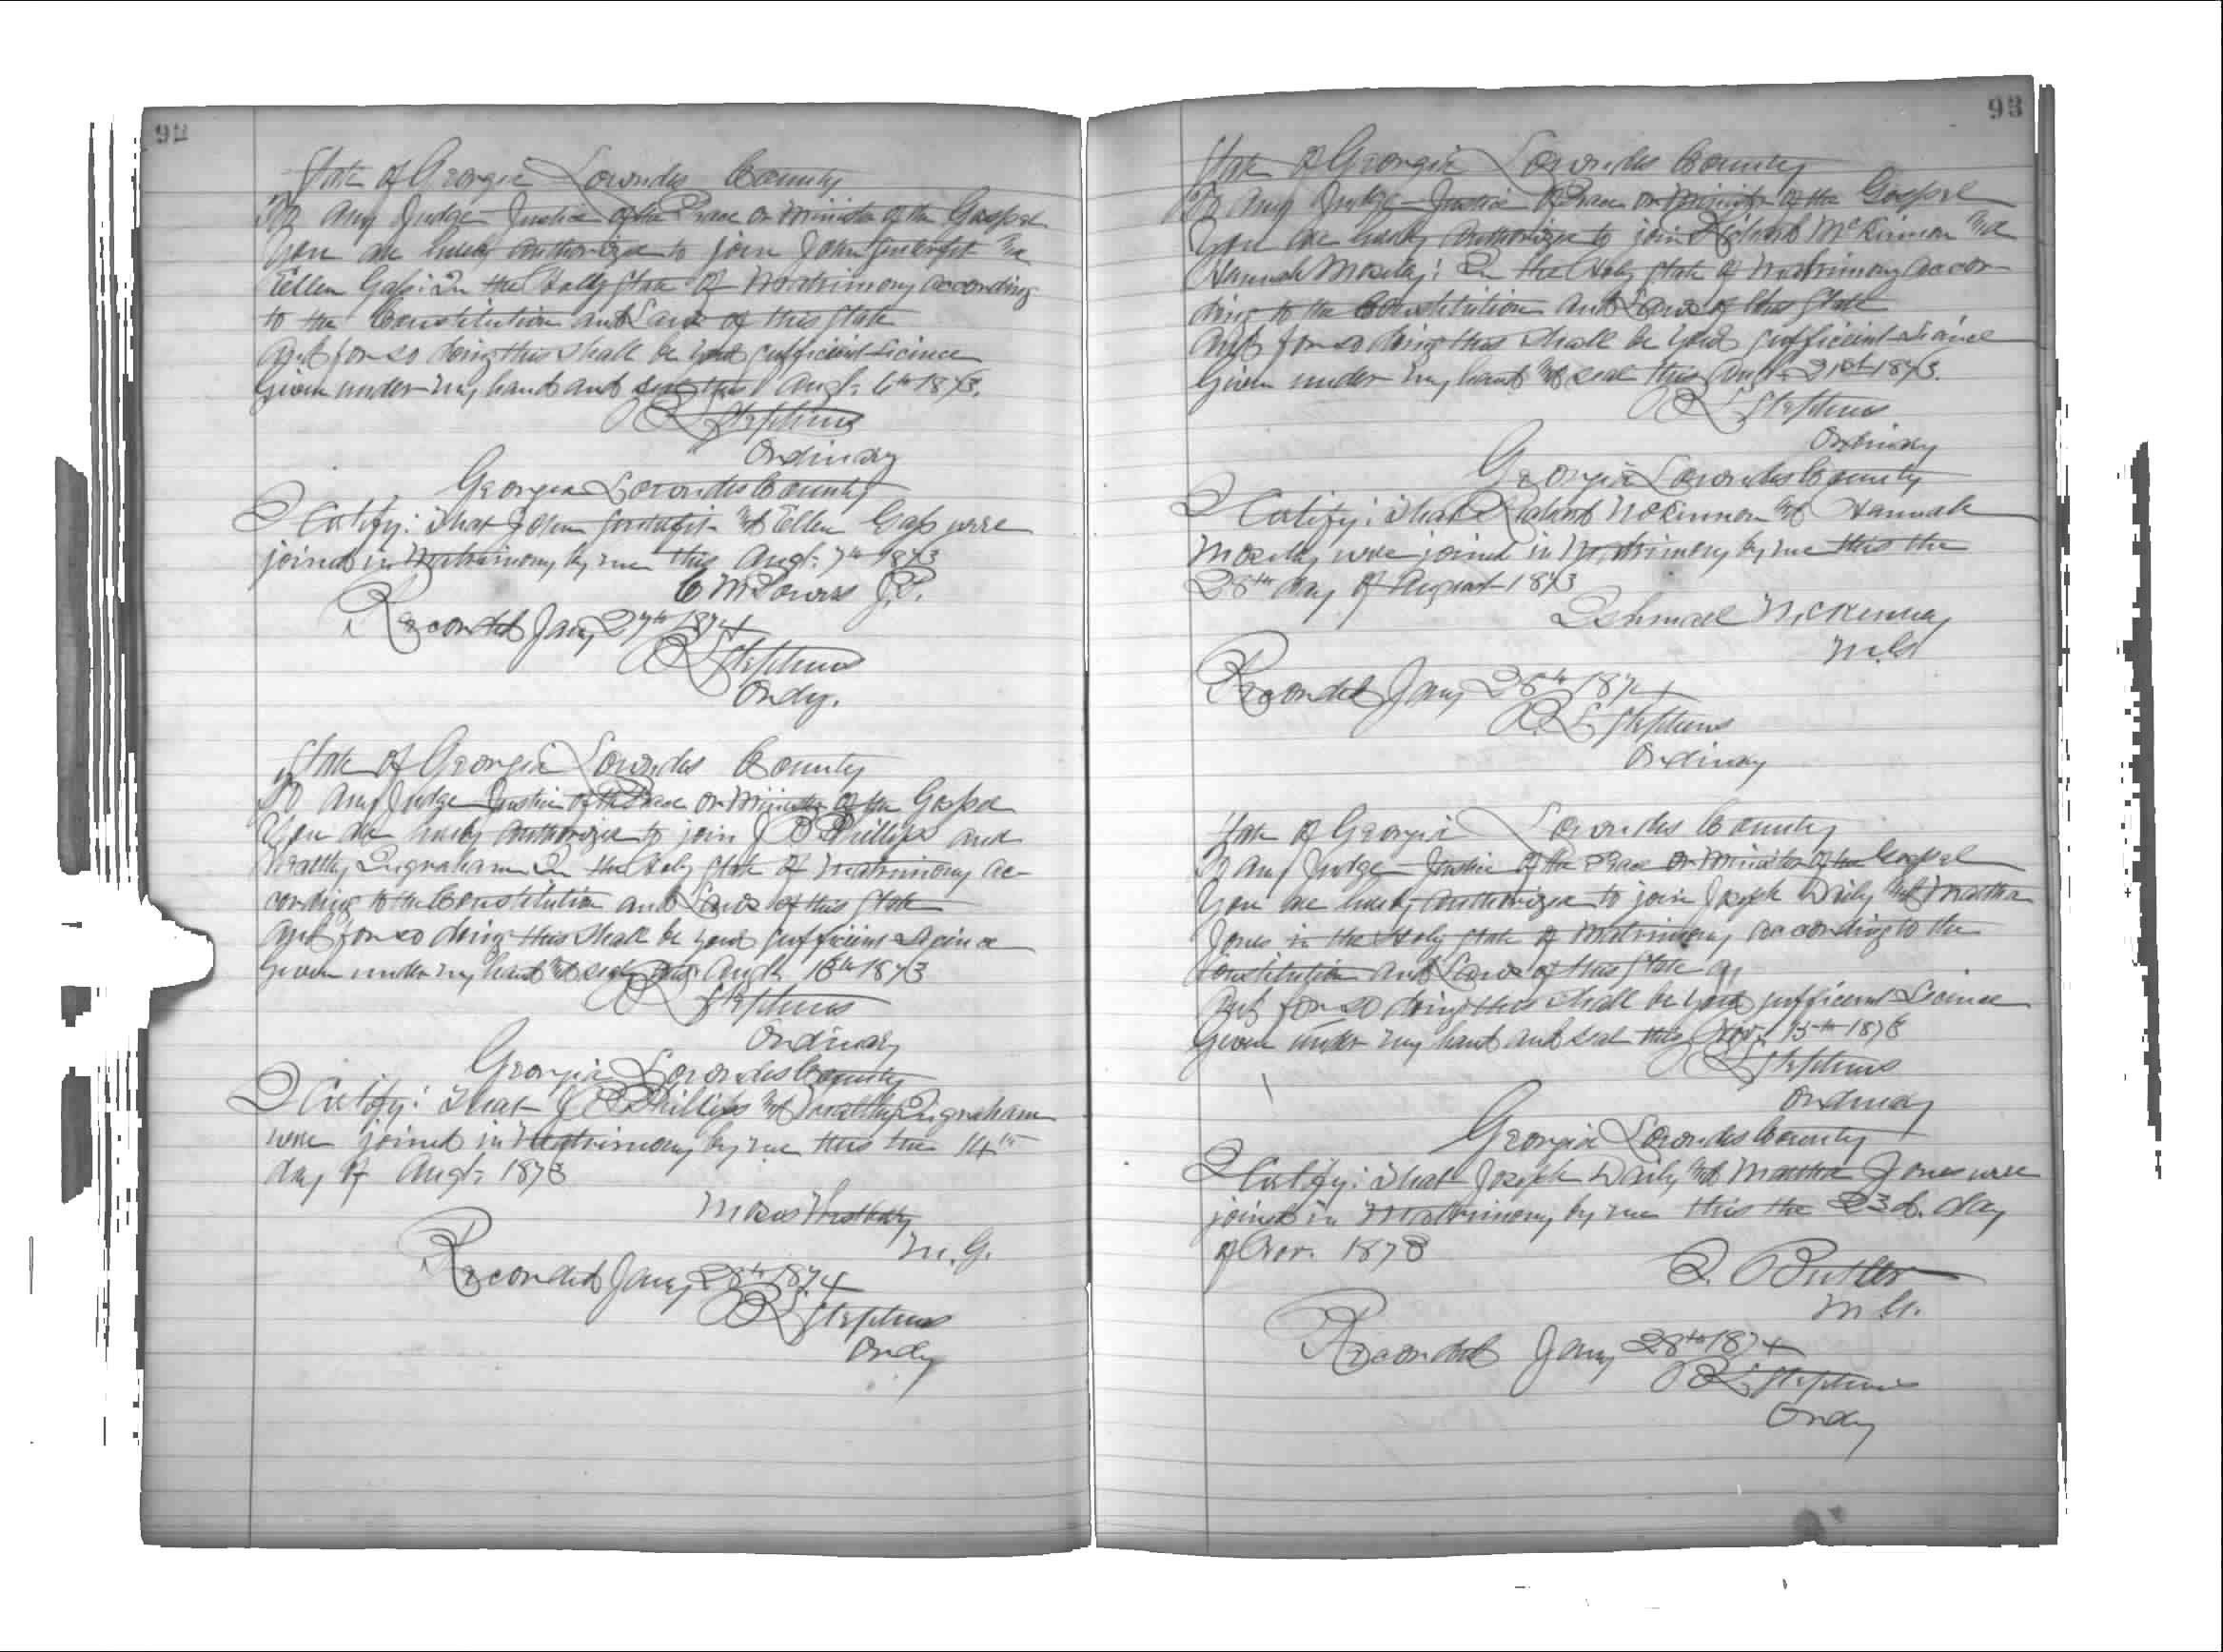 92
State of Georgia Lowndes County
To any Judge Justice of the Peace or Minister of the Gospel
You are hereby authorized to join John and
Ellen Gass: In the Holy State of Matrimony according
to the Constitution and Laws of this State
And for so doing this shall be your sufficient Licince
Given under my hand and seal this Augt. 6th 1873.
R L Stephens
Ordinary
Georgia Lowndes County
I Certify: That John and Ellen Gass were
joined in Matrimony by me this Augt. 7th 1873
C M J.P.
Recorded Jany 27th 1874
R L Stephens
Ordy.
State of Georgia Lowndes County
To any Judge Justice of the Peace or Minister of the Gospel
You are hereby authorized to join J B Phillips and
Ingraham In the Holy State of Matrimony ac-
cording to the Constitution and Laws of this State
And for so doing this shall be your sufficient Licince
Given under my hand and seal this Augt. 13th 1873
R L Stephens
Ordinary
Georgia Lowndes County
I Certify: That J B Phillips and Ingraham
were joined in Matrimony by me this the 14th
day of Augt. 1873
Moses
M.G.
Recorded Jany 28th 1874
R L Stephens
Ordy
93
State of Georgia Lowndes County
To any Judge Justice of Peace or Minister of the Gospel
You are hereby authorized to join McKinnon and
Hannah Mosely: In the Holy State of Matrimony accor-
ding to the Constitution and Laws of this State
And for so doing this shall be your sufficient Licince
Given under my hand and seal this Augt. 21st 1873.
R L Stephens
Ordinary
Georgia Lowndes County
I Certify: That McKinnon and Hannah
Mosely were joined in Matrimony by me this the
28th day of August 1873
Ishmael
M.G
Recorded Jany 28th 1874
R. L Stephens
Ordinary
State of Georgia Lowndes County
To any Judge Justice of the Peace or Minister of the Gospel
You are hereby authorized to join Joseph Daily and Martha
Jones in the Holy State of Matrimony according to the
Constitution and Laws of this State
And for so doing this shall be your sufficient Licince
Given under my hand and seal this Nov. 15th 1873
R L Stephens
Ordinary
Georgia Lowndes County
I Certify: That Joseph Daily and Martha Jones were
joined in Matrimony by me this the 23d. day
of Nov. 1873
Butler
M G.
Recorded Jany 28th 1874
R L Stephens
Ordy